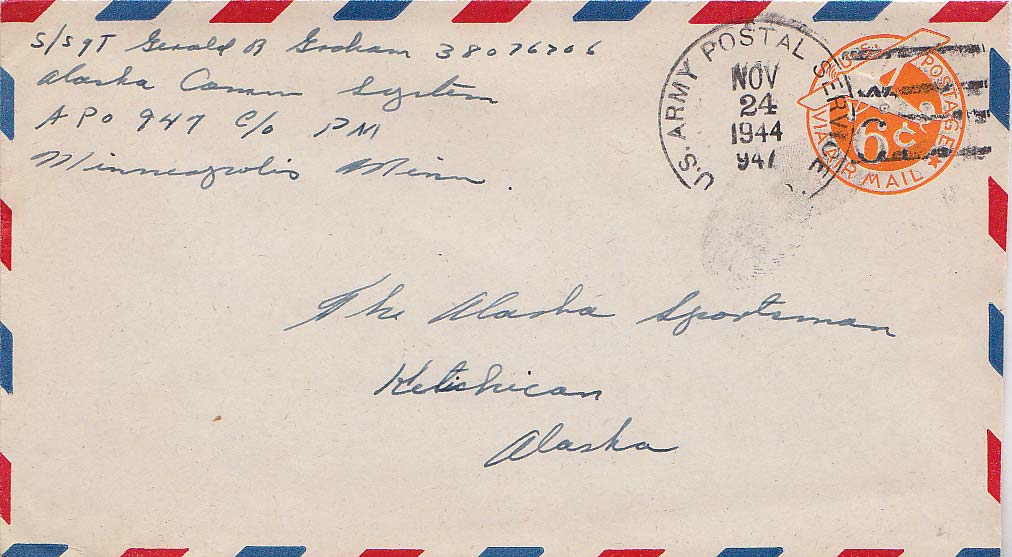 S/Sgt Gerald B Graham 38076706
Alaska Comm System
APO 947 C/o PM
Minneapolis Minn.
U.S. ARMY POSTAL SERVICE
NOV
24
1944
947
U.S. POSTAGE
6¢
VIA AIR MAIL
The Alaska Sportsman
Ketichican
Alaska